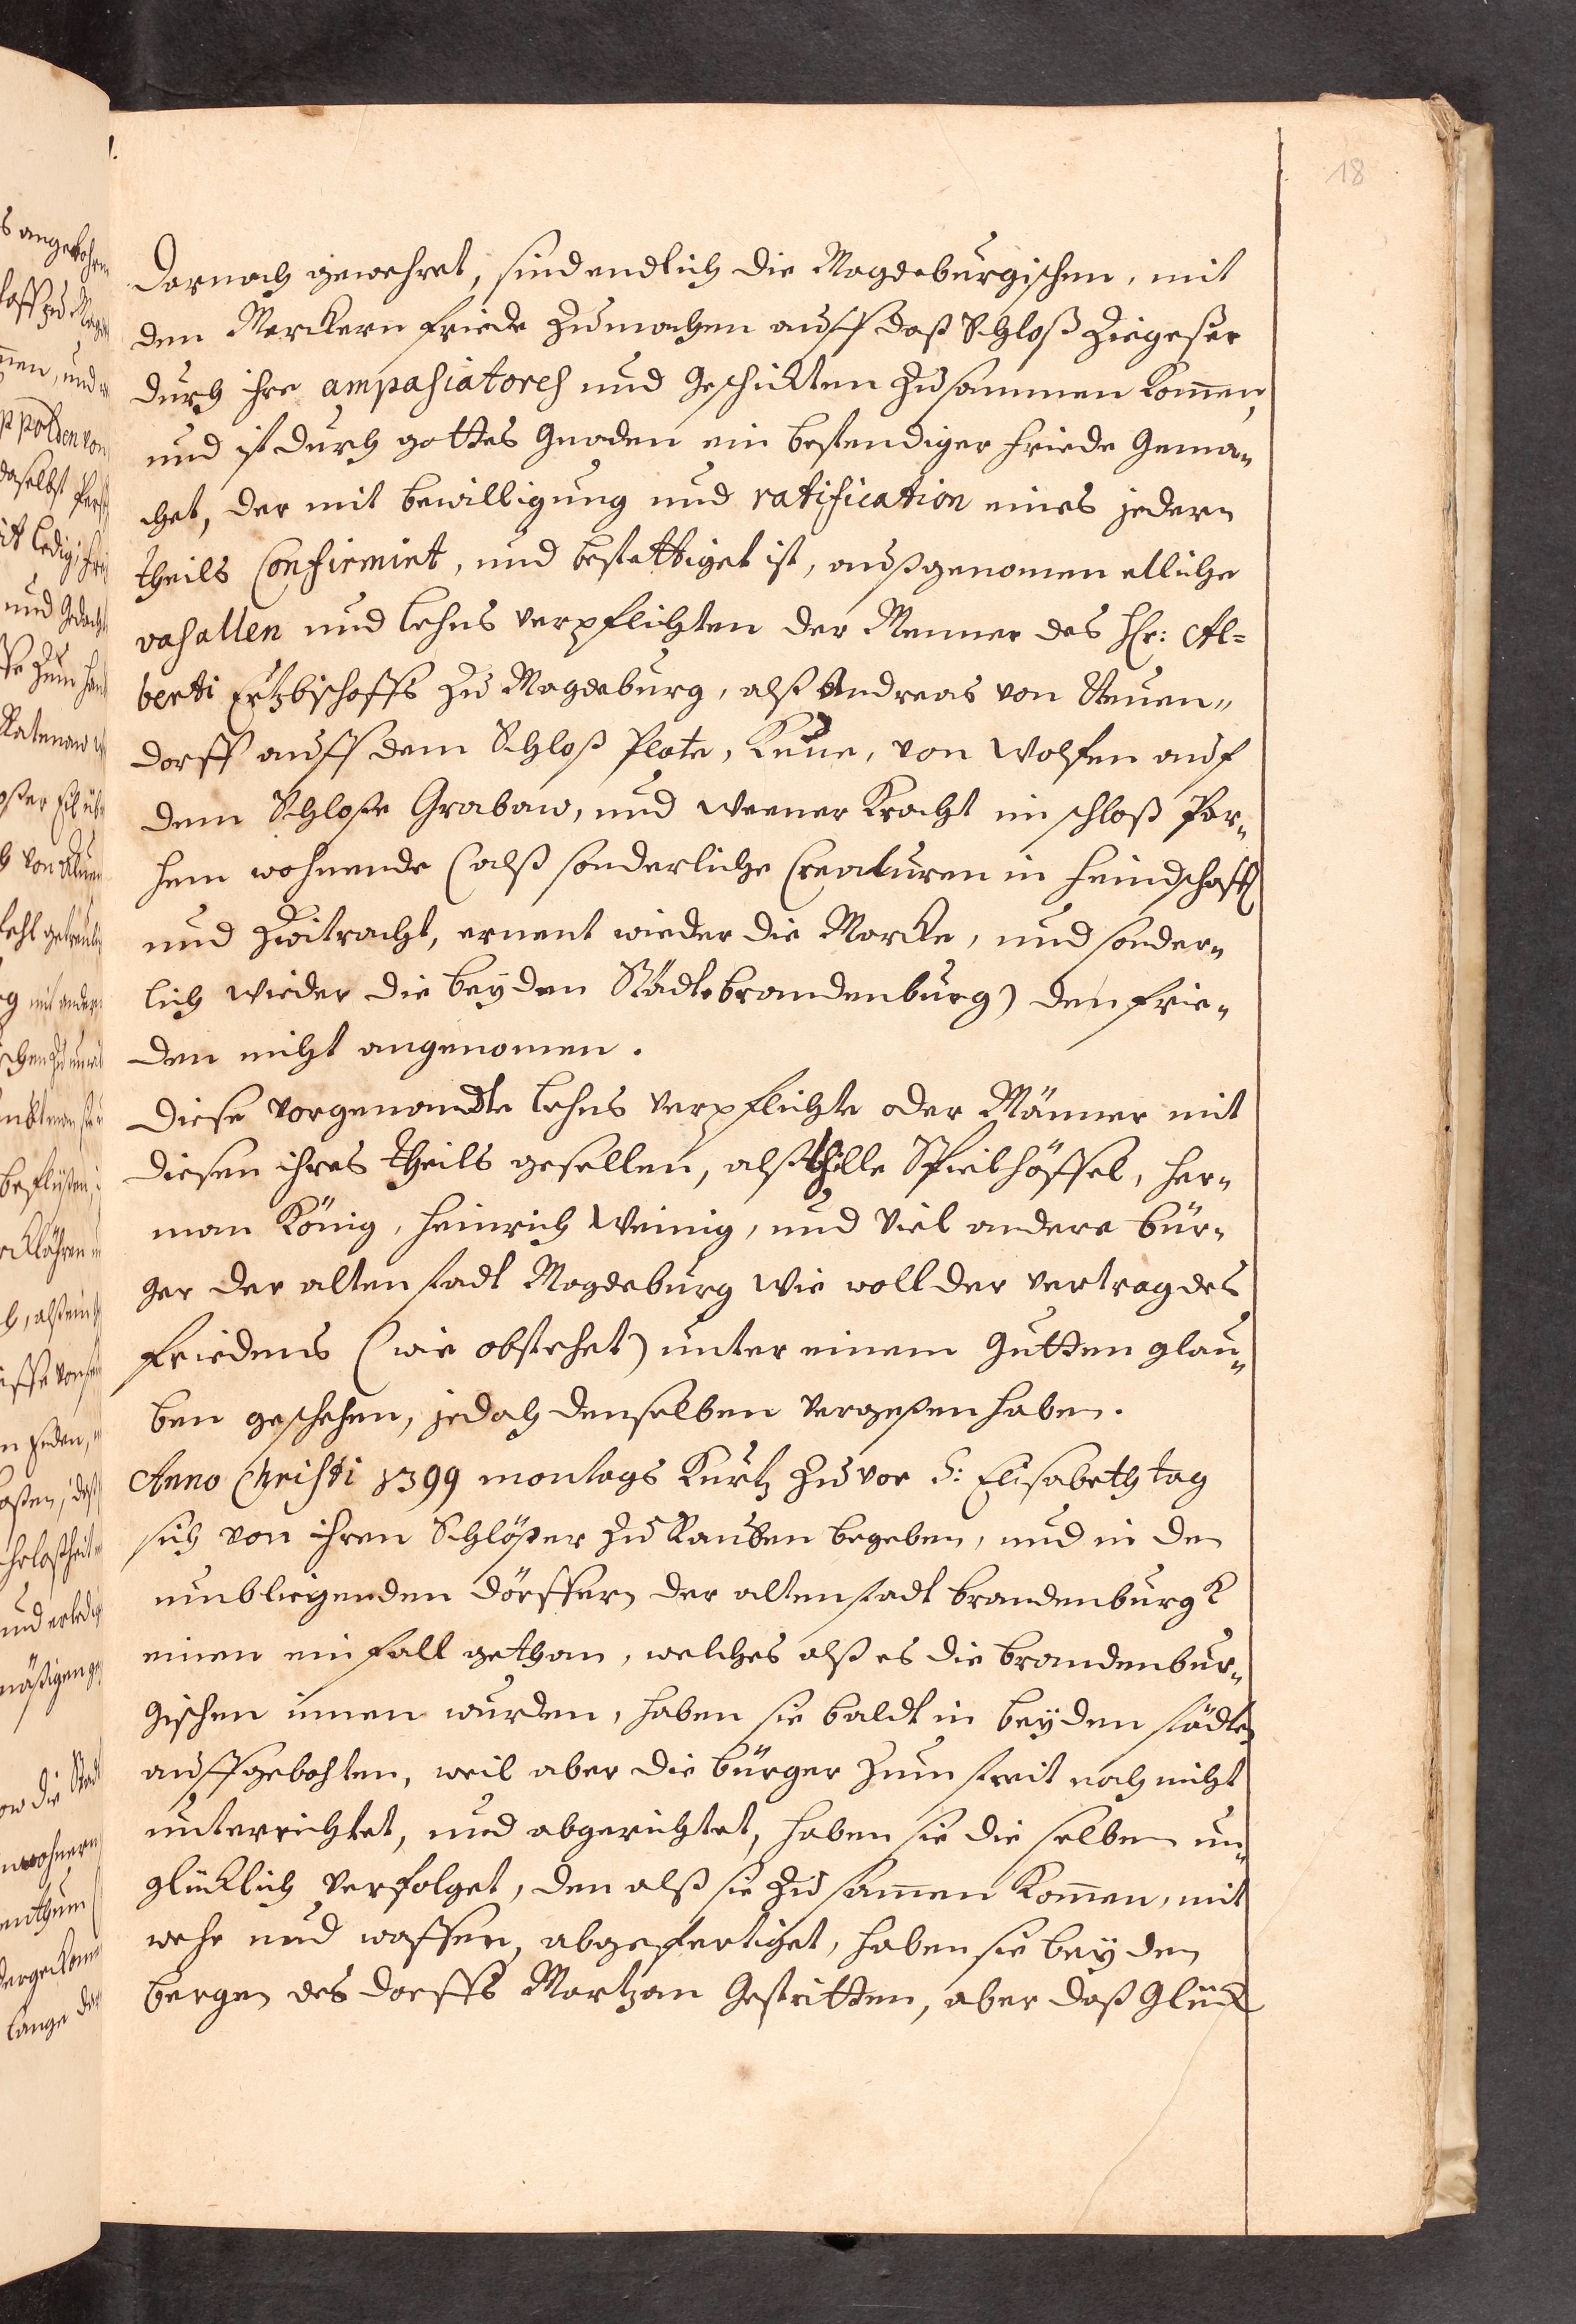 18
Darnach gewehret, sind endlich die Magdeburgischen, mit
den Merckern friede zumachen auff daß Schloß Ziegeser
durch ihre ampasiatores und Geschickten zusammen kommen,
und ist durch gottes Gnaden ein bestendiger friede Gema„
chet, der mit bewilligung und ratification eines jedern
theils Confirmirt, und bestettiget ist, außgenomen etliche
vasallen und lehns verpflichten der Menner des Hr: Al=
berti Ertzbischoffs zu Magdeburg, alß Andreas von Neuen„
dorff auff dem Schloß Plote, Kune, von Wolfen auf
dem Schloße Grabaw, und Werner Kracht im schloß Par„
hem wohnende (alß sonderliche Creaturen in feindschafft
und Zwitracht, ernent wieder die Marcke, und sonder„
lich wieder die beyden Städte brandenburg) den frie„
den nicht angenomen.
Diese vorgenandte lehns verpflichte oder Männer mit
diesen ihres theils gesellen, alß Hille Spielhöffel, Her„
man König, Heinrich Weinig, und viel andere bür„
ger der alten stadt Magdeburg wie woll der vertrag des
friedens (wie obstehet) unter einem Gutten glau„
ben geschehen, jedoch denselben vergeßen haben.
Anno Christi 1399 montags Kurtz zuvor S: Elisabeth tag
sich von ihren Schlößer zu Rauben begeben, und in den
umbliegenden dörffern der alten stadt brandenburgk
einen einfall gethan, welches alß es die brandenbur„
gischen innen wurden, haben sie baldt in beyden städten
auffgebohten, weil aber die bürger zum streit noch nicht
unterrichtet, und abgerichtet, haben sie die selben un„
glücklich verfolget, den alß sie zusammen kommen, mit
wehr und waffen, abgefertiget, haben sie bey den
bergen des dorffs Martzan Gestritten, aber daß Glück